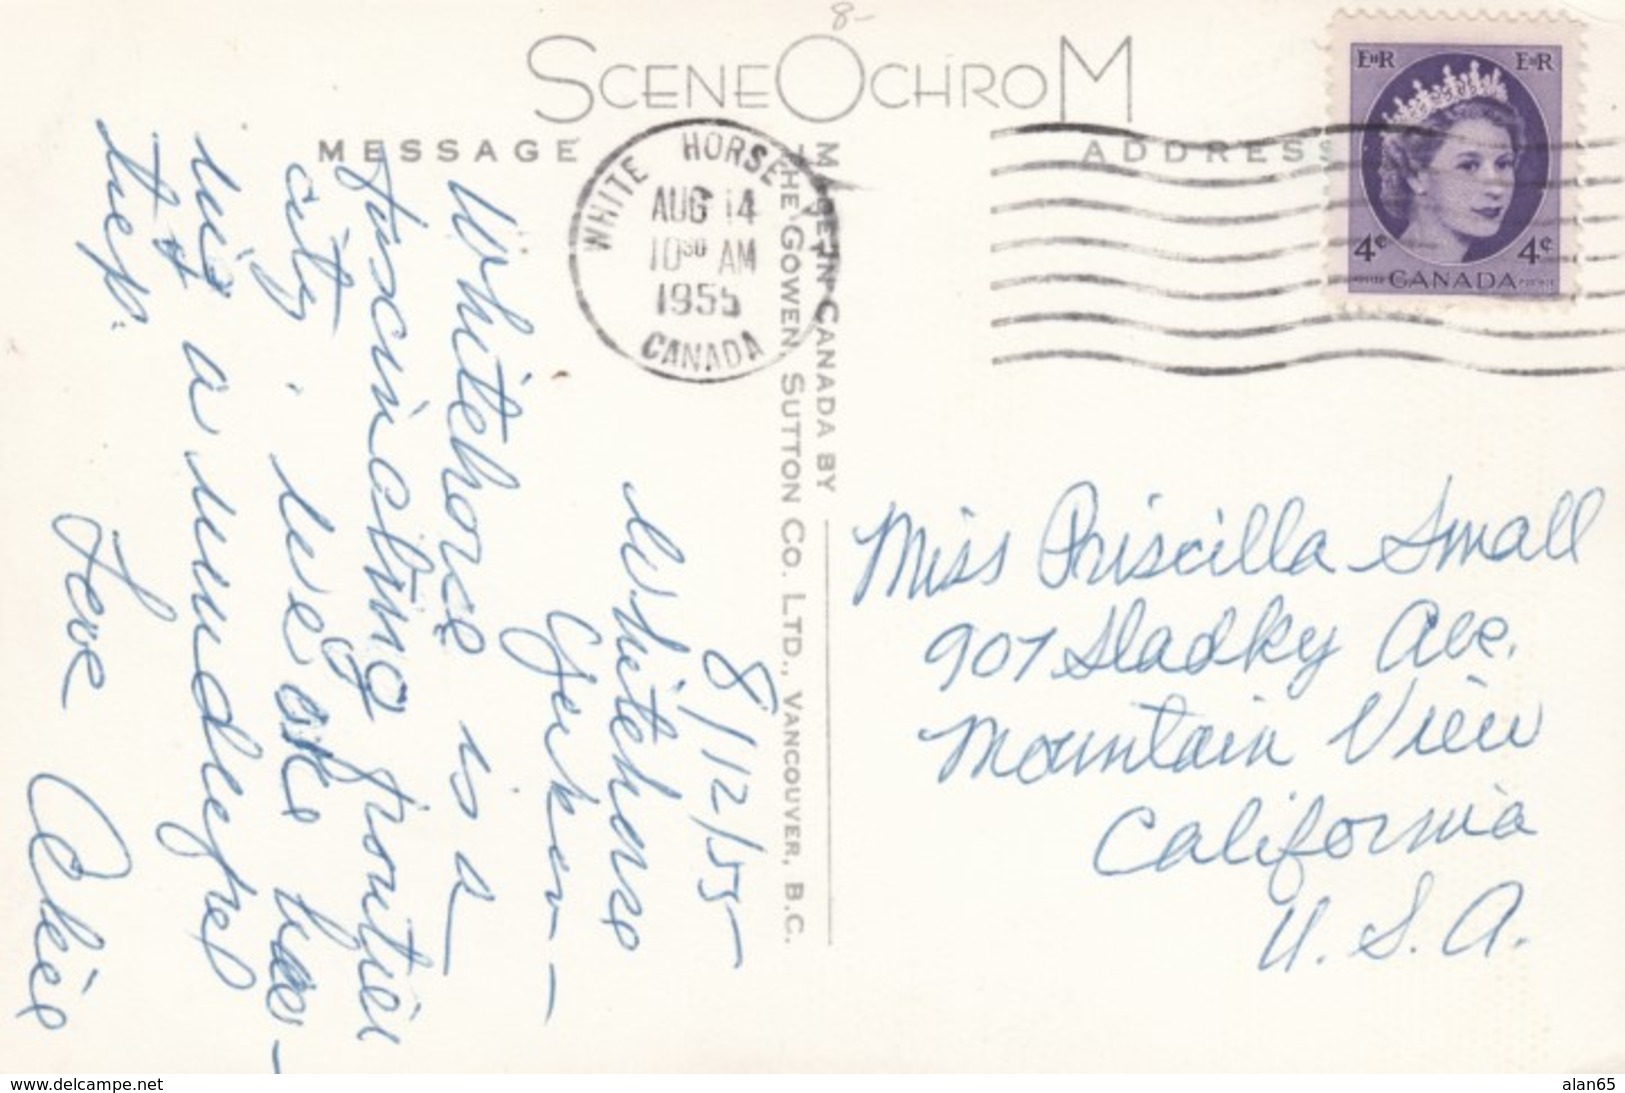 8-
SCENEOCHROM
MESSAGE
ADDRESS
WHITE HORSE
AUG 14
10³⁰ AM
1955
CANADA
E II R
E II R
4¢
4¢
CANADA
POSTES POSTAGE
MADE IN CANADA BY
THE GOWEN, SUTTON CO. LTD., VANCOUVER, B.C.
8/12/55
Whitehorse
Yukon -
Whitehorse is a
fascinating frontier
city. We are hav-
ing a wonderful
trip.
Love
Miss Priscilla Small
907 Sladky Ave.
Mountain View
California
U. S. A.
www.delcampe.net
alan65